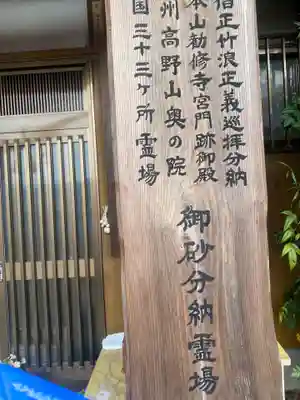 僧正竹浪正義巡拝分納
本山勧修寺宮門跡御殿
州高野山奥の院
国三十三ヶ所霊場
御砂分納霊場